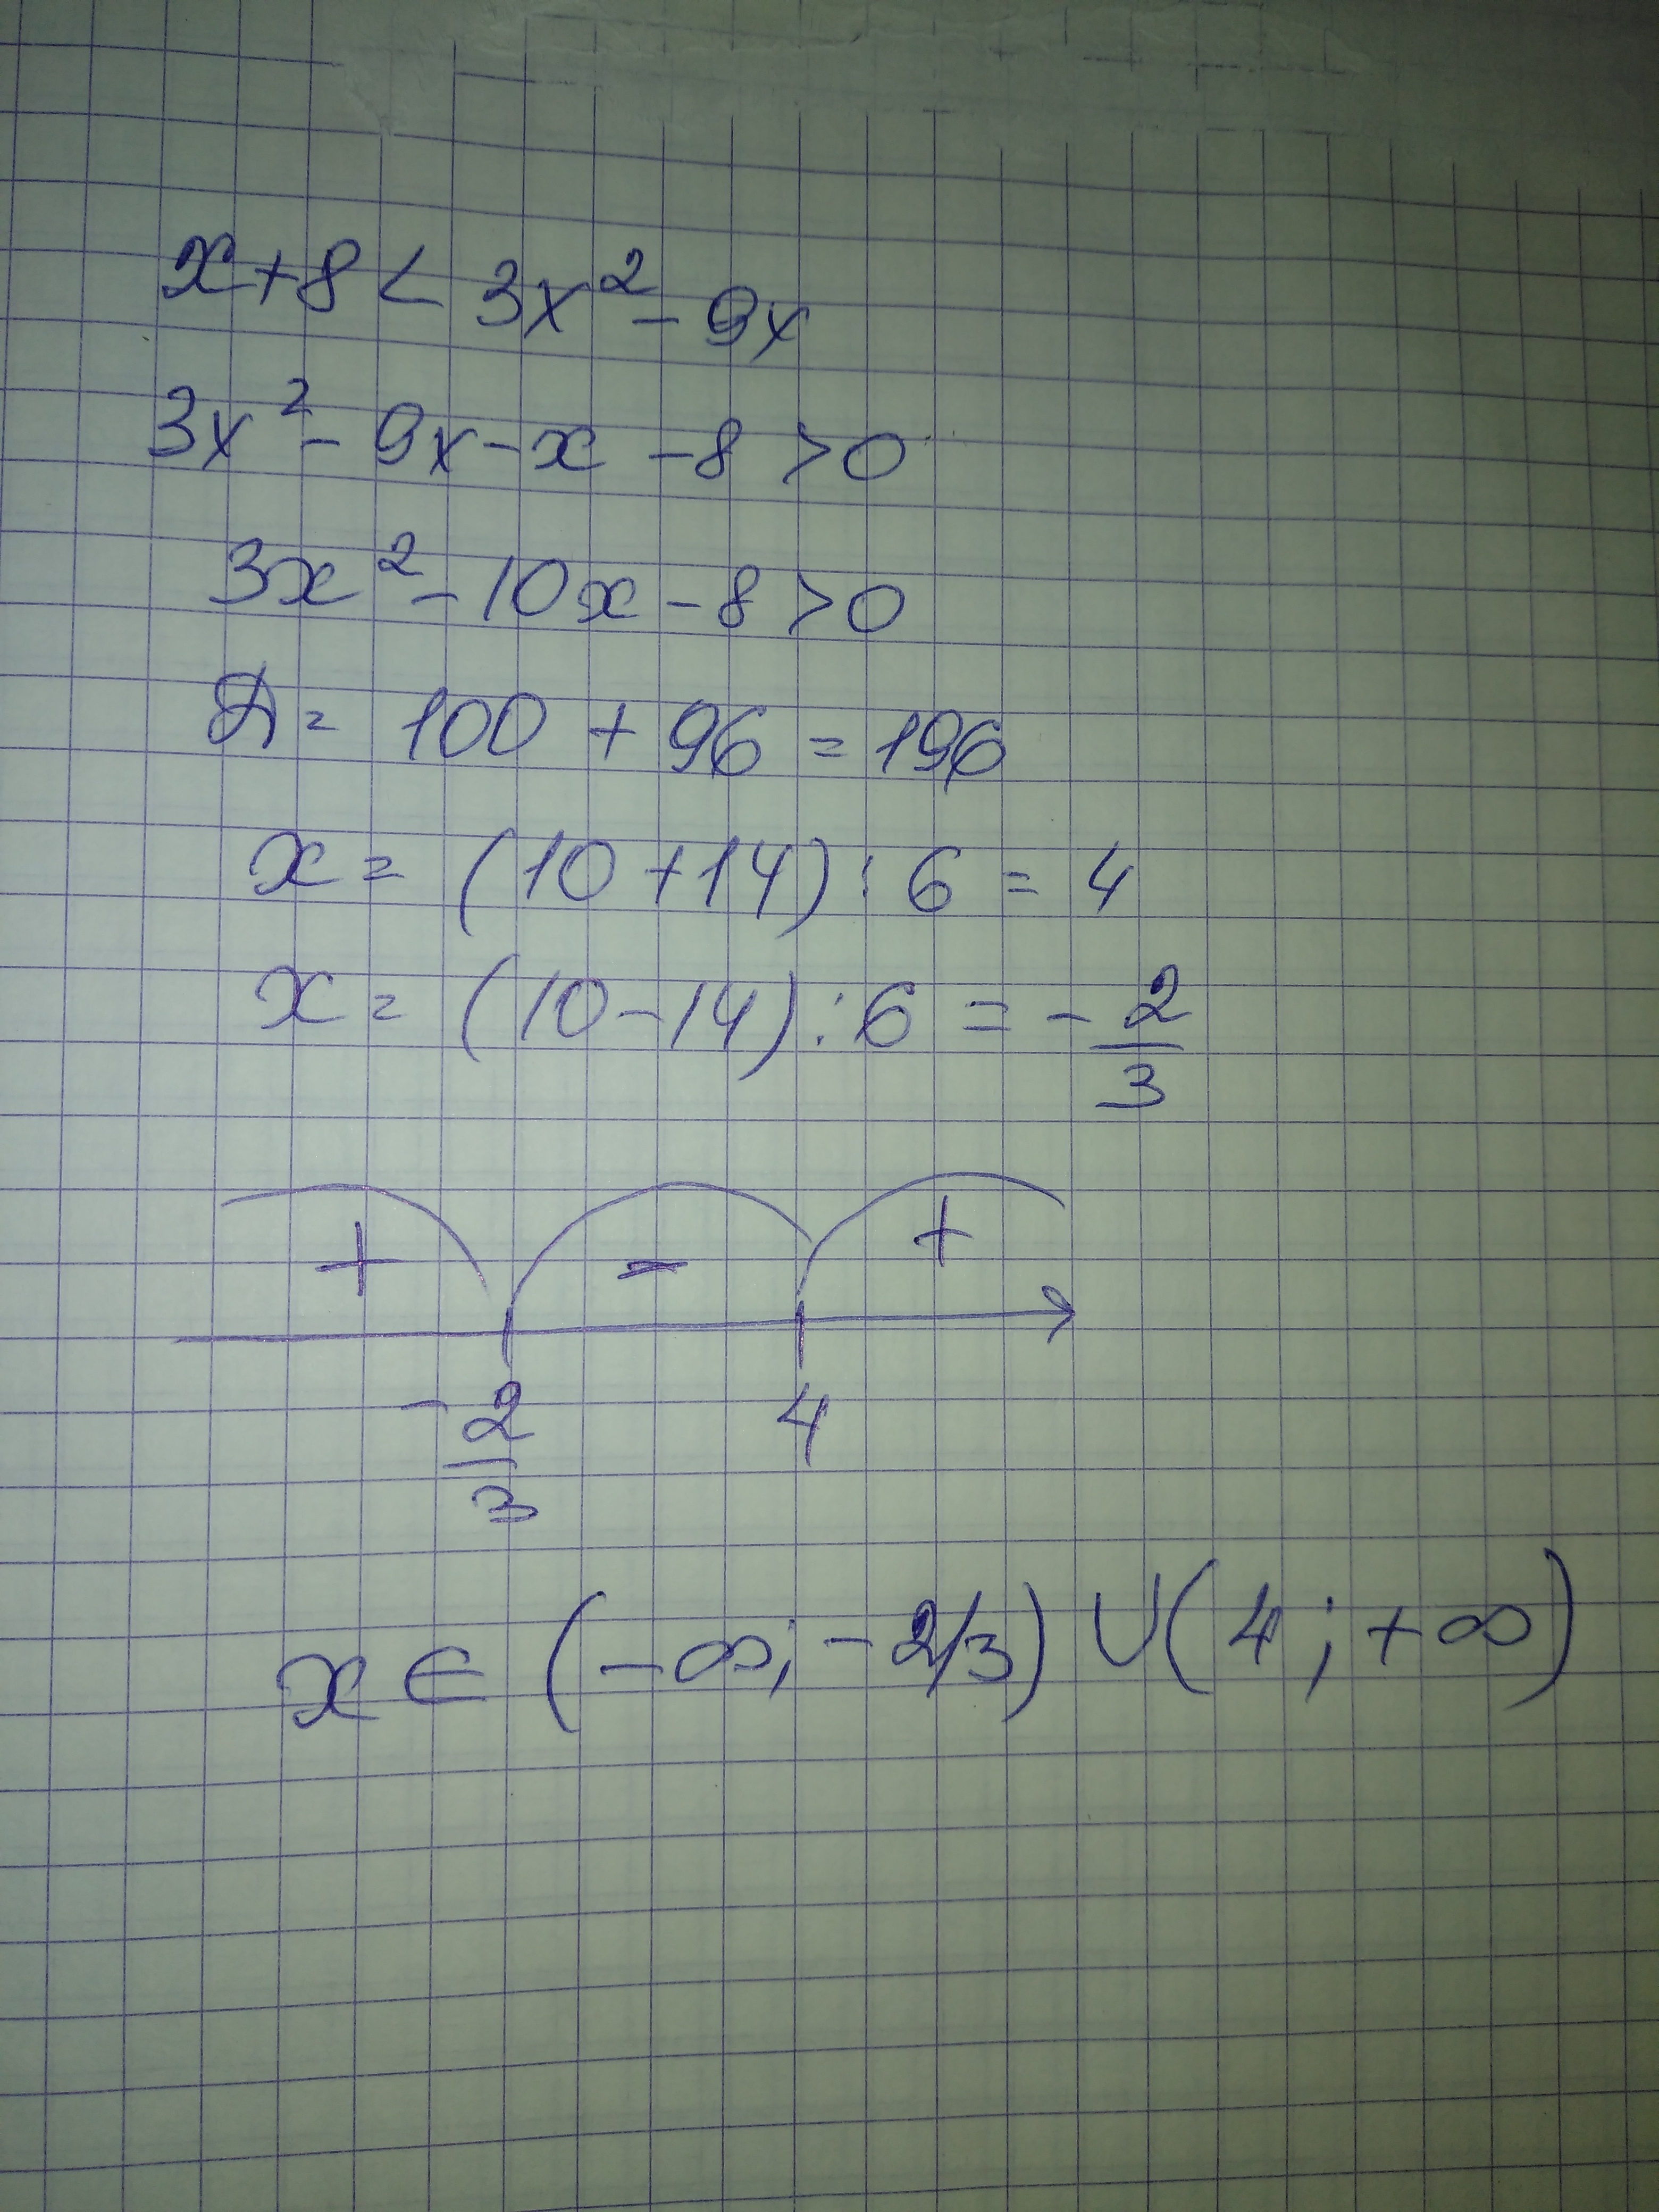 x+8 < 3x² - 9x
3x² - 9x - x - 8 > 0
3x² - 10x - 8 > 0
Д = 100 + 96 = 196
x = (10 + 14) : 6 = 4
x = (10 - 14) : 6 = - 2/3
+ - +
- 2/3 4
x ∈ (-∞; - 2/3) ∪ (4; +∞)